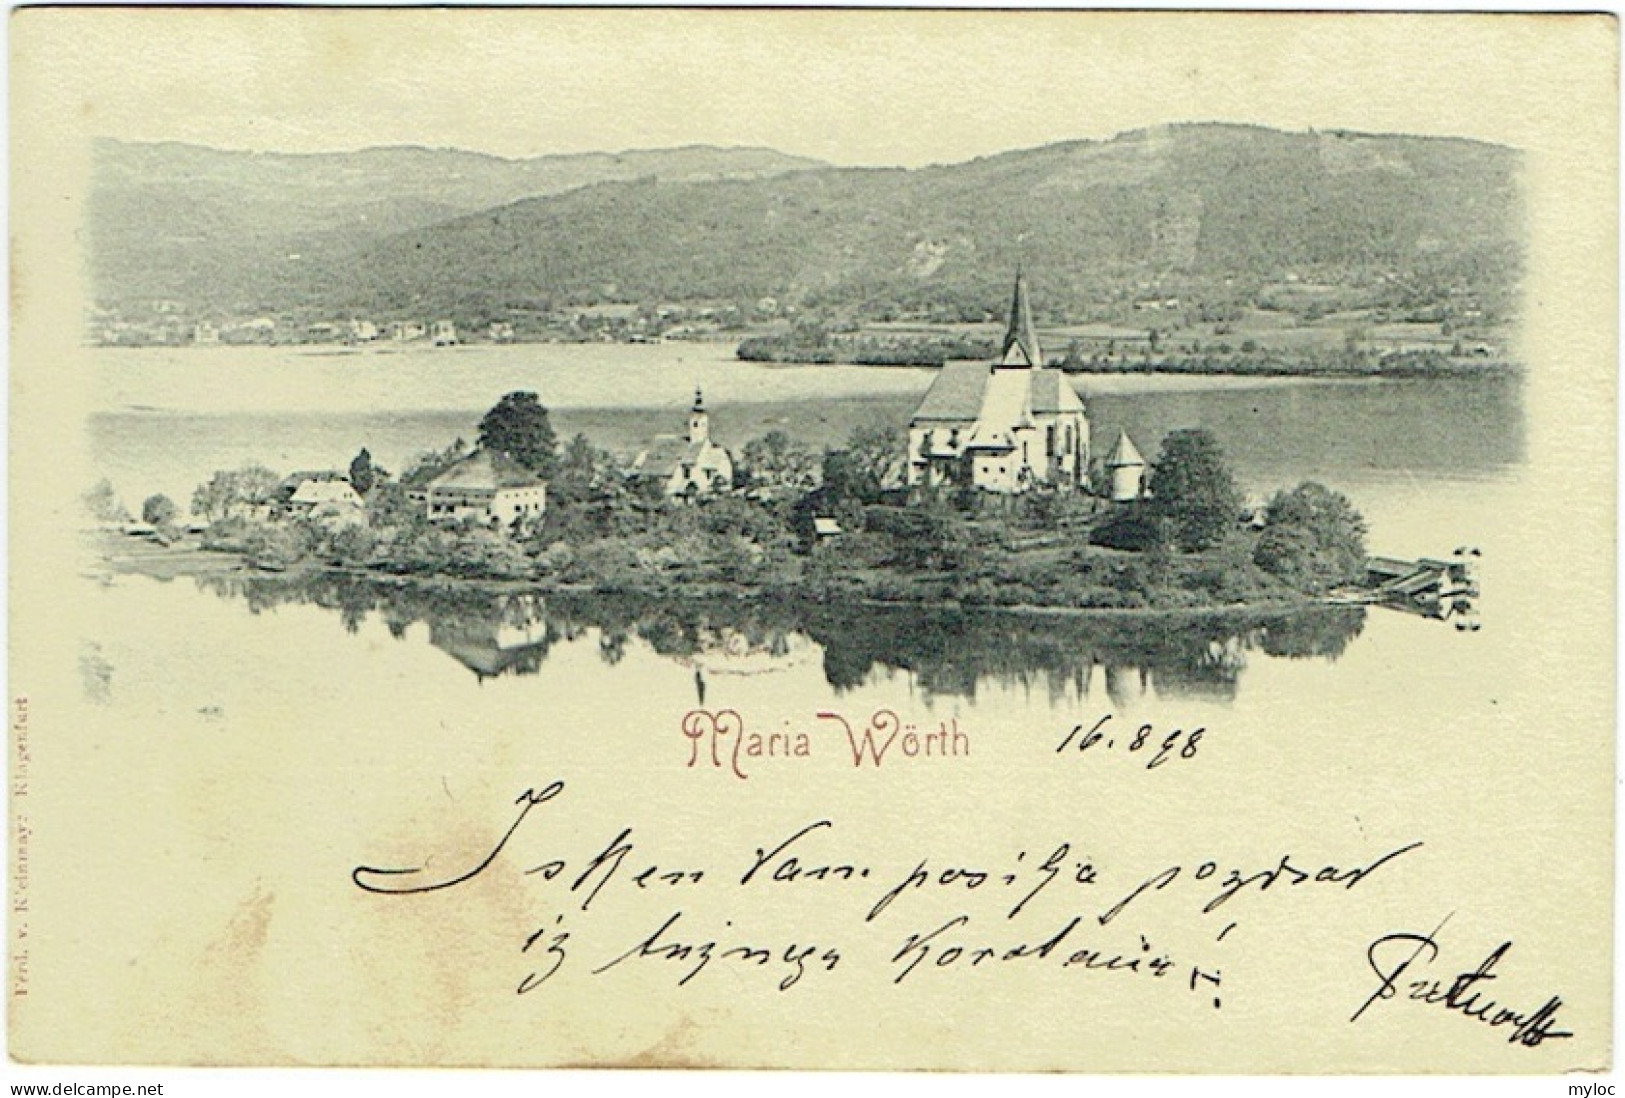 Maria Wörth
16.8 98
Iskren Vam posilja pozdrav
iz tužnega Korotana!
Ferd. v. Kleinmayr Klagenfurt
www.delcampe.net
myloc